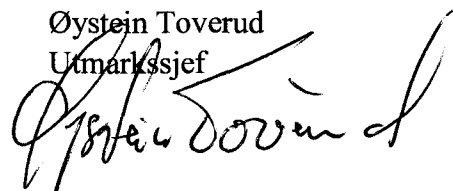 Øystein Toverud
Utmarkssjef
Øystein Toverud